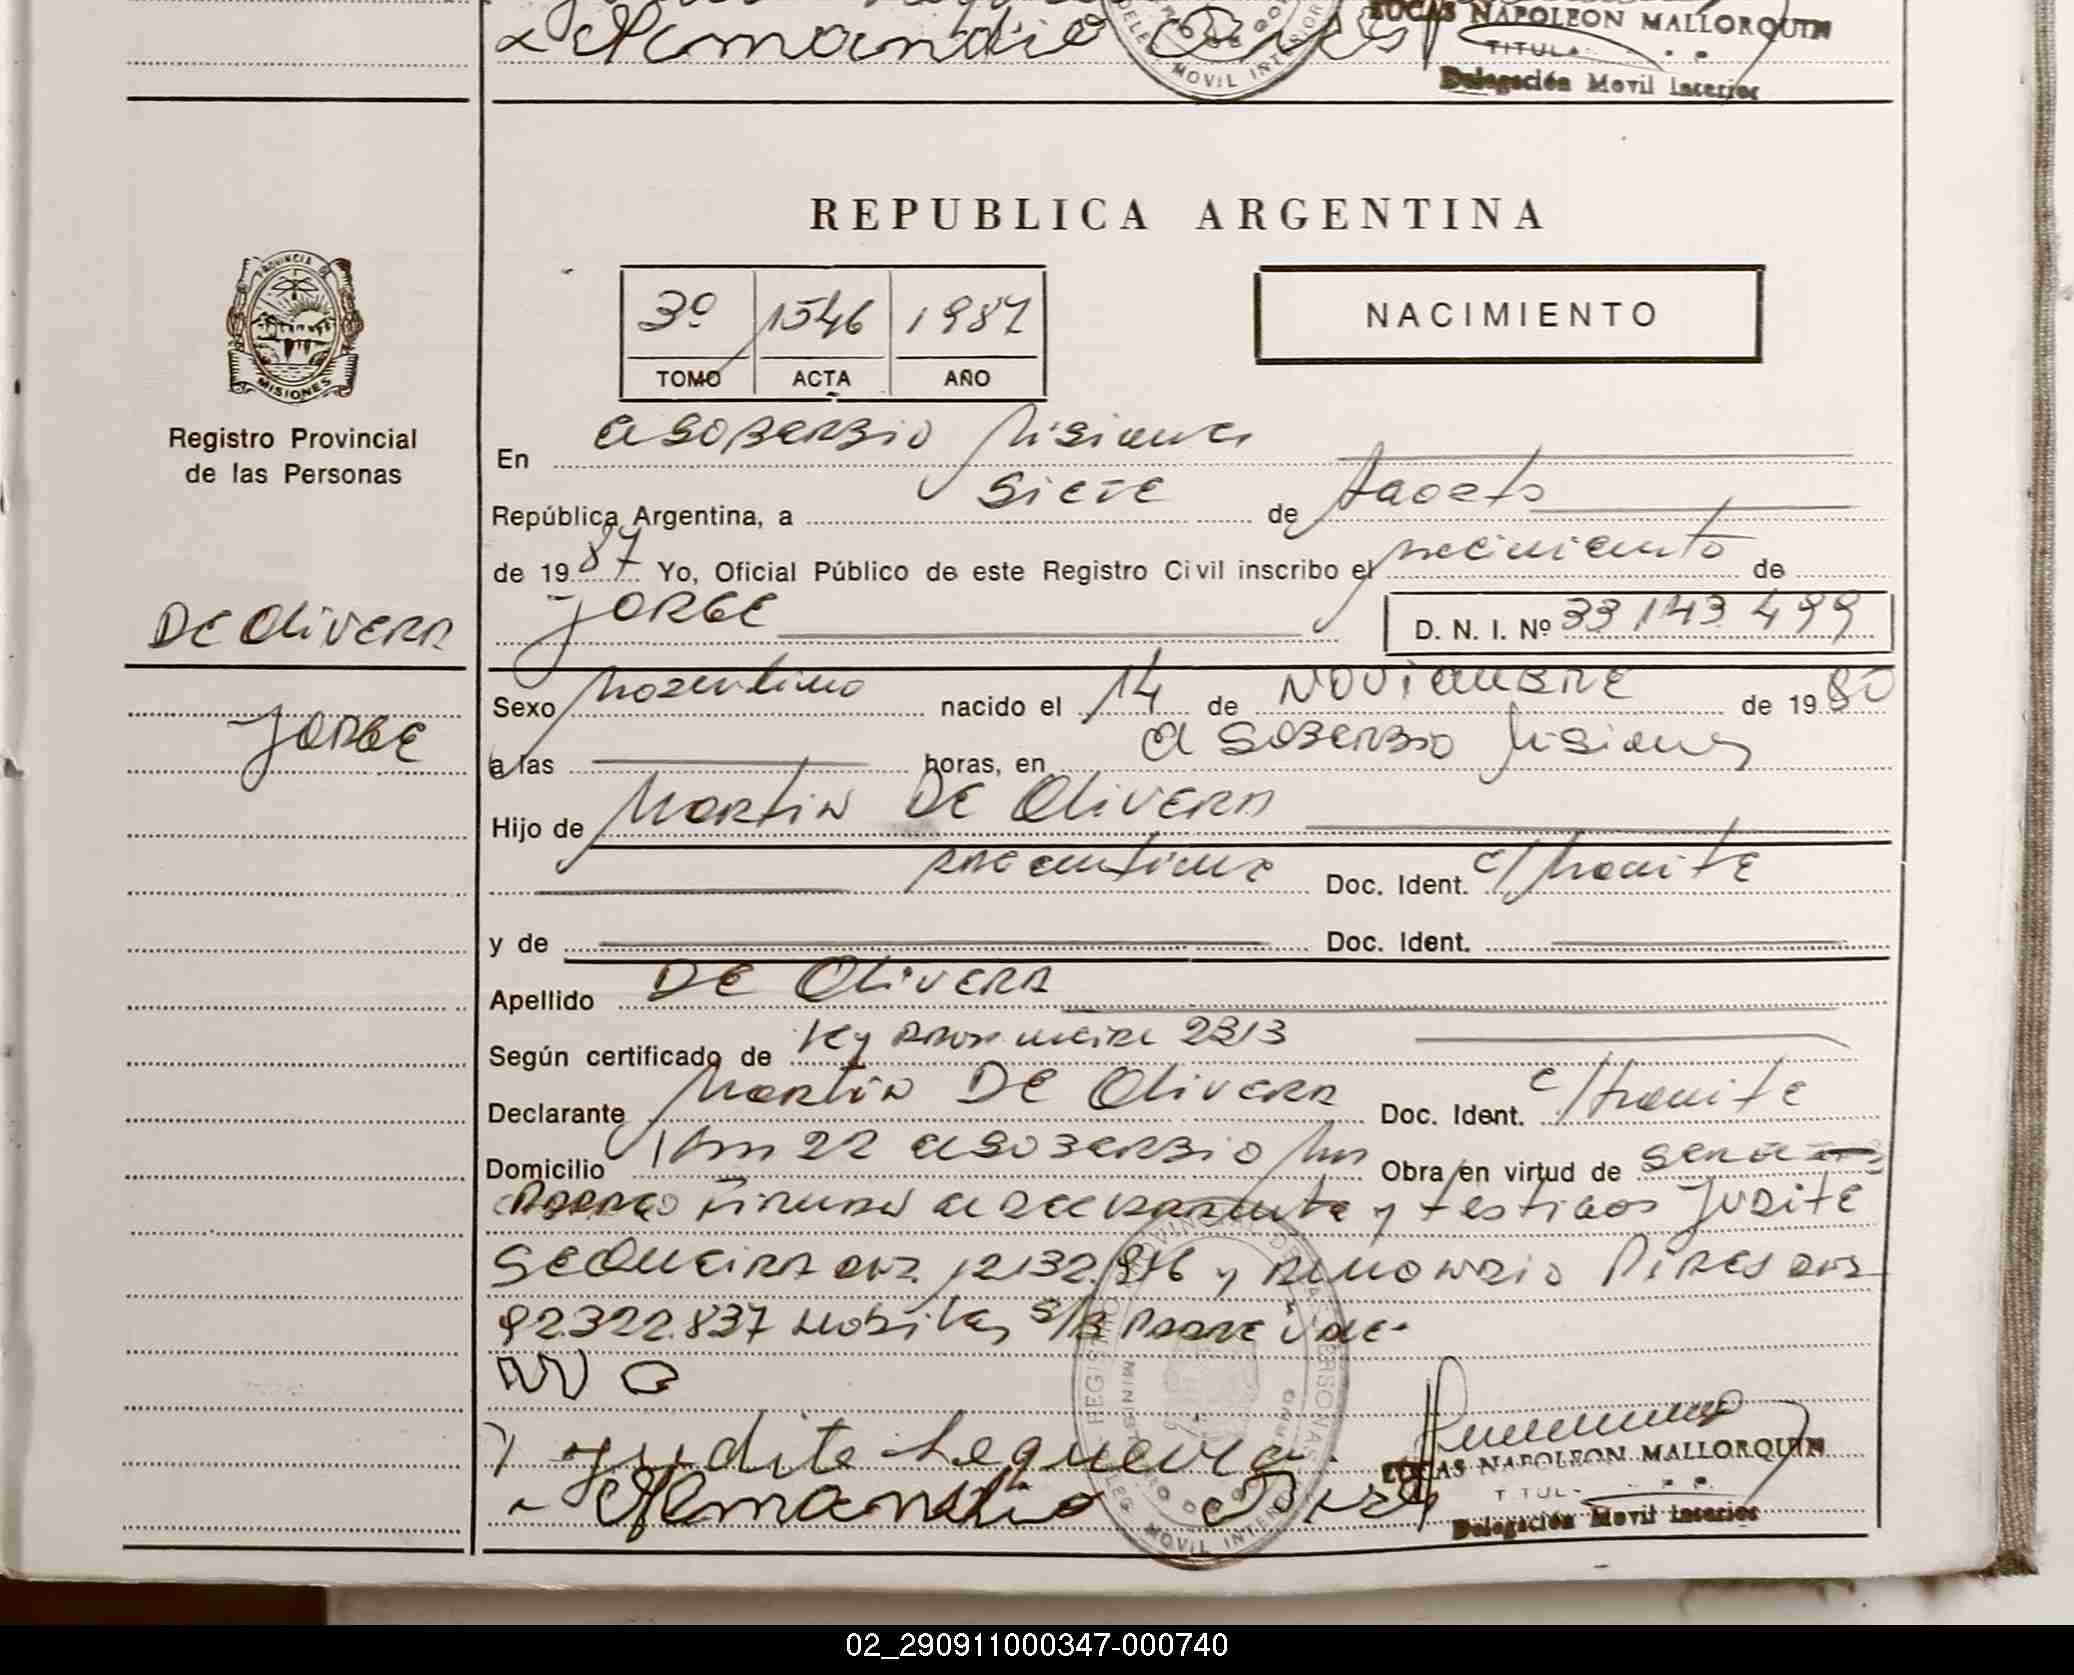 LUCAS NAPOLEON MALLORQUIN
TITULAR
Delegación Movil Interior
REPUBLICA ARGENTINA
3º 1546 1987
TOMO ACTA AÑO
NACIMIENTO
PROVINCIA DE
MISIONES
Registro Provincial
de las Personas
En El SOBERBIO Misiones
República Argentina, a SIETE de Agosto
de 1987 Yo, Oficial Público de este Registro Civil inscribo el nacimiento de
JORGE D. N. I. Nº 33 143 499
DE OLIVERA
JORGE
Sexo Masculino nacido el 14 de NOVIEMBRE de 1980
a las horas, en El SOBERBIO Misiones
Hijo de MARTIN DE OLIVERA
Argentino Doc. Ident. e/tramite
y de Doc. Ident.
Apellido DE OLIVERA
Según certificado de Ley 2313
Declarante MARTIN DE OLIVERA Doc. Ident. e/tramite
Domicilio Km 22 El SOBERBIO Mns Obra en virtud de
firman el declarante y testigos JUDITE
SEQUEIRA DNI. 12132.916 y PIRES DNI
92322.837
Judite Sequeira
LUCAS NAPOLEON MALLORQUIN
TITULAR
Delegación Movil Interior
02_290911000347-000740